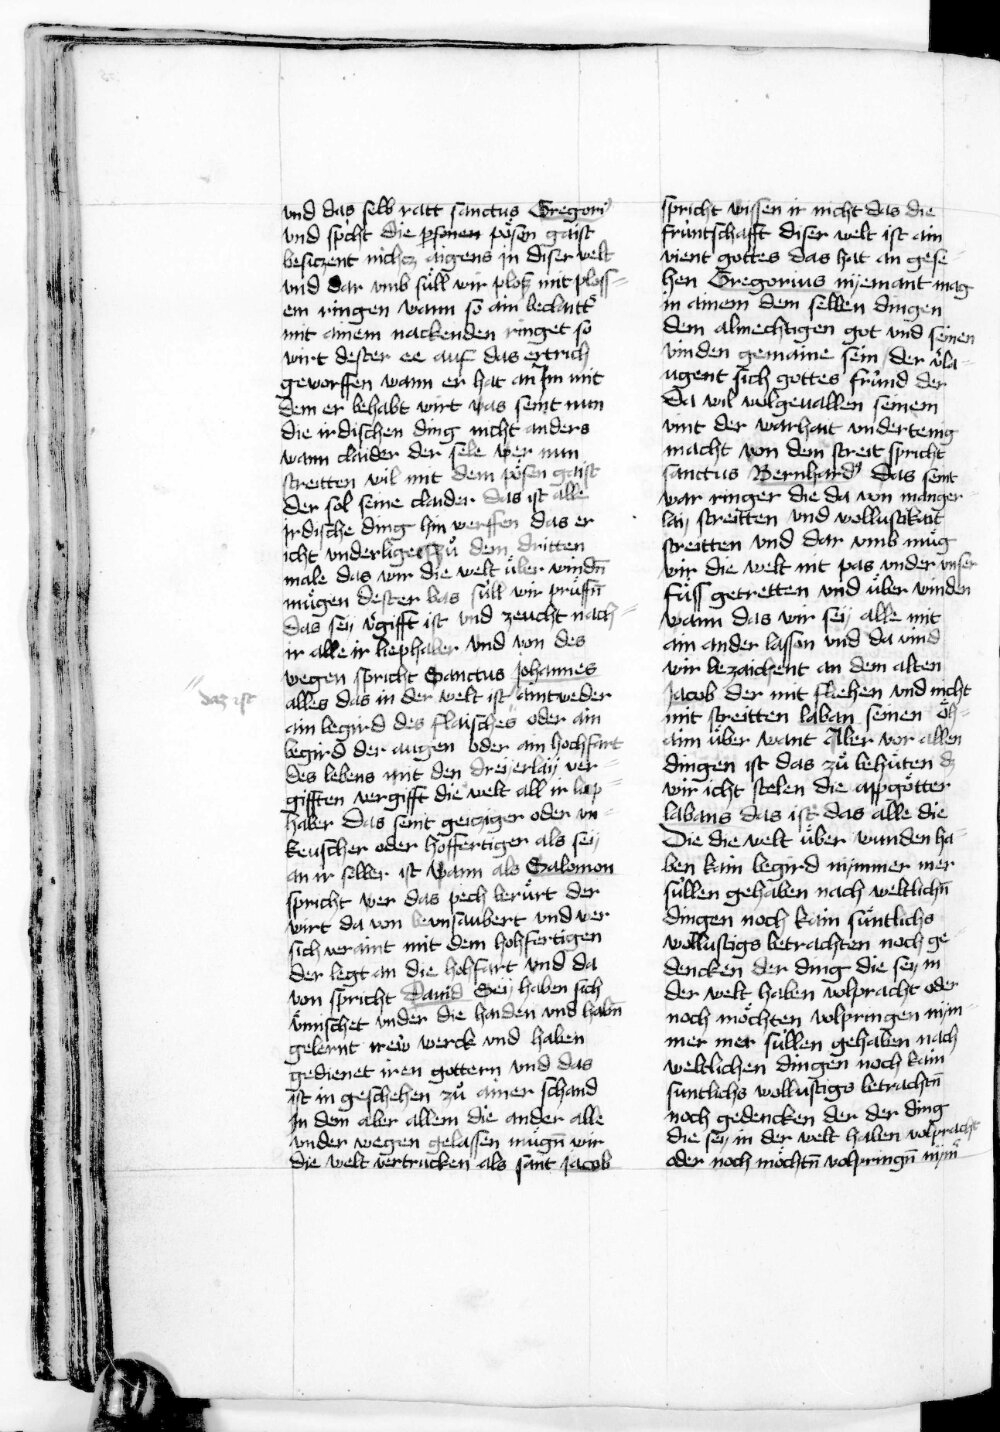 vnd das selb ratt sanctus Gregori9
vnd spͥcht die pͣsonen pösen gaist
besiczent nichcz aigens in diser welt
vnd dar vmb süll wir plosz mit ploss=
em ringen wann so ain beclaitt͛
mit ainem nackenden ringet so
wirt dester ee auf das ertrich
geworffen wann er hat an Im mit
dem er behabt wirt was seint nun
die irdischen ding nicht anders
wann claider der sele wer nun
streitten wil mit dem pösen gaist
der sol seine claider das ist alle
irdische ding hin werffen das er
icht vnderlige zů dem dritten
male das wir die welt über windn̄
mügen dester bas süll wir prüffn̄
das seÿ v͛gifft ist vnd zeucht nach=
ir alle ir liephaber vnd von des
wegen spricht Sanctus Johannes
" das ist
alles das in der welt ist aintweder
ain begird des flaisches" oder ain
begird der augen oder ain hochfart
des lebens mit den dreÿerlaÿ ver=
gifften vergifft die welt all ir liep=
haber das seint geicziger oder vn=
keuscher oder hoffertiger als seÿ
an ir selber ist wann als Salomon
spricht wer das pech berürt der
wirt da von bevnsaubert vnd wer
sich veraint mit dem hohfertigen
der legt an die hohfart vnd da
von spricht Dauid Seÿ haben sich
v͛mischet vnder die haiden vnd habn̄
gelernt irew werck vnd haben
gedienet iren gottern vnd das
ist in geschehen zů ainer schand
In dem aber allem die ander alle
vnder wegen gelassen mügn̄ wir
die welt vertrucken als sant Jacob
spricht wissen ir nicht das die
früntschafft diser welt ist ain
vient gottes das hat an gese=
hen Gregorius nÿemant mag
in ainem dem selben dingen
dem almechtigen got vnd seinen
vinden gemaine sein / der v͛la=
ugent sich gottes fründ der
da wil wolgeuallen seinem
vint der warhait vndertenig
macht von dem streit spricht
sanctus Bernhard9 das seint
war ringer die da von manger=
laÿ streitten vnd wollustikait
streitten vnd dar vmb müg
wir die welt nit pas vnder vnser
füss getretten vnd über winden
wann das wir seÿ alle mit
ain ander lassen vnd da vind
wir bezaichent an dem alten
Jacob der mit fliehen vnd nicht
mit streitten laban seinen öh=
aim über want Aber vor allen
dingen ist das zů behüten dz
wir icht stelen die appgötter
labans das ist das alle die
Die die welt über wunden ha=
ben kain begird nÿmmer mer
süllen gehaben nach weltlichn̄
dingen noch kain süntlichs
wollustigs betrachten noch ge=
dencken der ding die seÿ in
der welt haben volpracht oder
noch möchten volpringen nÿm=
mer mer süllen gehaben nach
weltlichen dingen noch kain
suntlichs wollustigs betrachtn̄
noch gedencken der der ding
die seÿ in der welt haben volpracht
oder noch möchtn̄ volpringn̄ nÿm͛